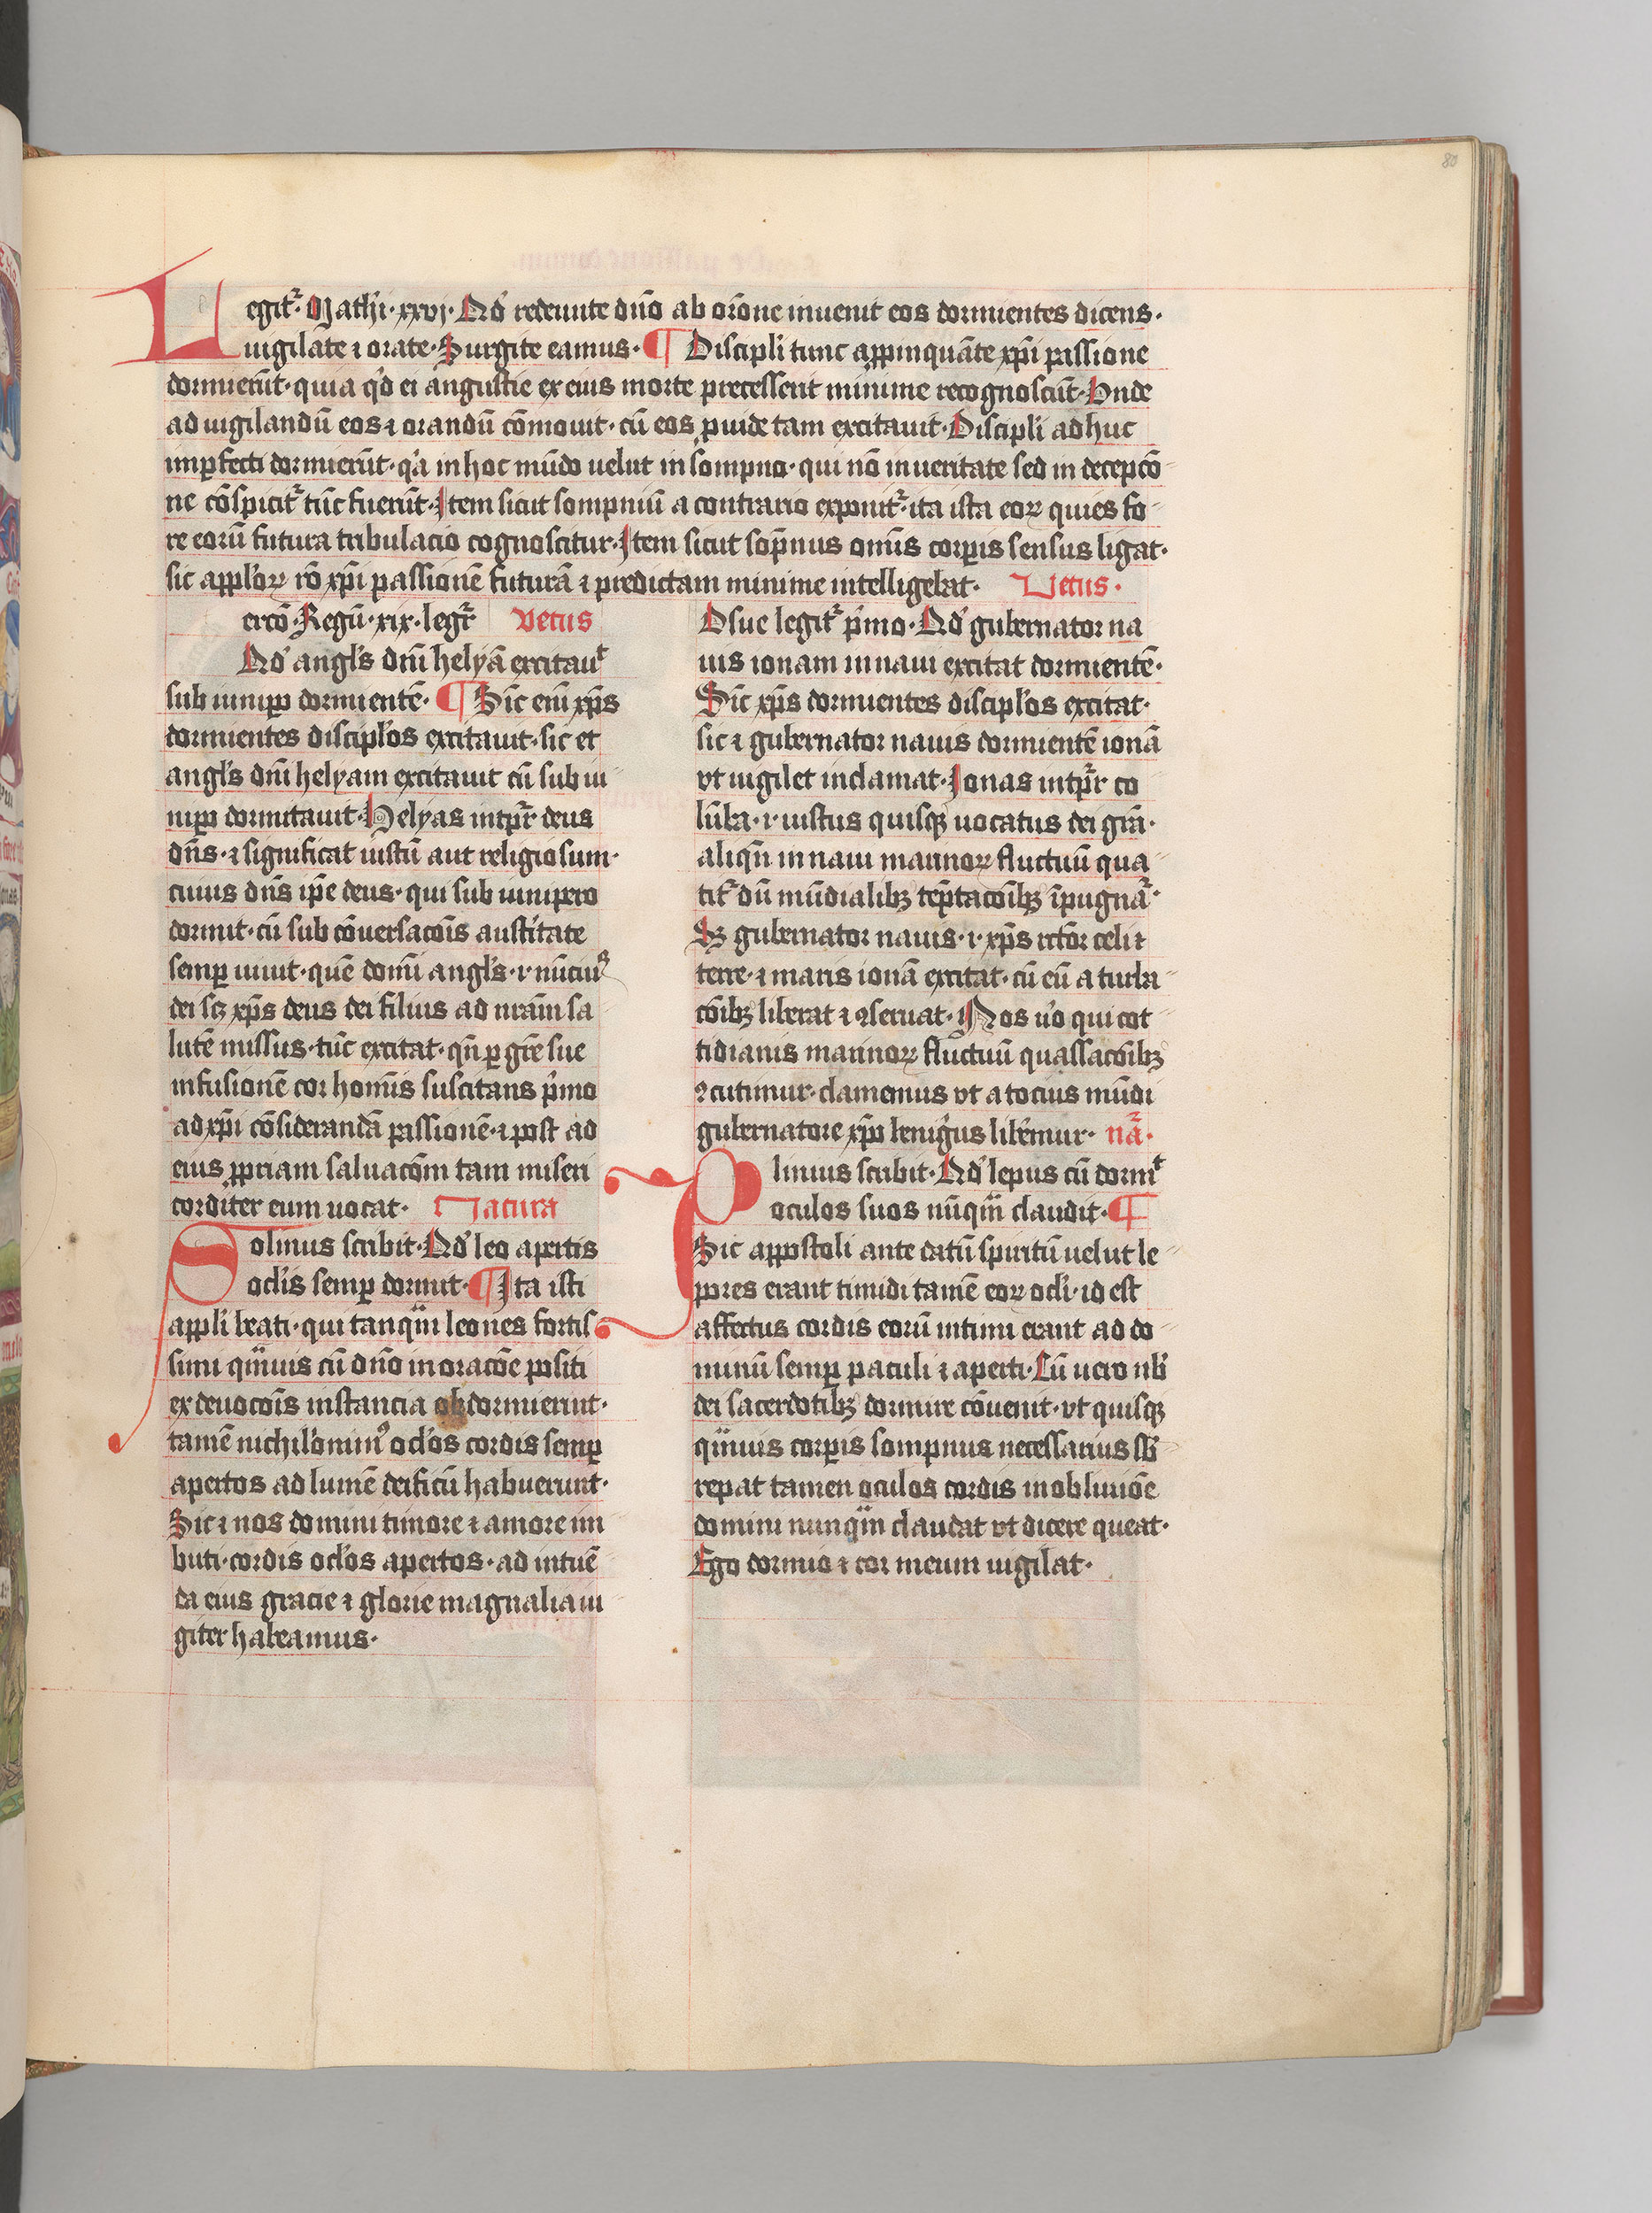 80
Legit᷑· Mathi·xxvj·Qd' redeunte dn̄o ab or̄one inuenit eos dormientes dicens·
uigilate ⁊ orate·Surgite eamus·¶ Discipli tunc appinquāte xp̄i passione
dormierūt·quia qd' ei angustie ex eius morte precesserit minime recognoscūt·Vnde
ad uigilandū eos ⁊ orandū cōmouit·cū eos puide tam excitauit·Discipli adhuc
imperfecti dormierūt·qa in hoc mūdo uelut in sompno·qui nō in ueritate sed in decepcō
ne cōspicit᷑ tūc fuerūt·Item sicut sompniū a contrario exponit᷑·ita ista eoꝝ quies fo
re eorū futura tribulacio cognoscitur·Item sicut sop̄nus omīs corꝑis sensus ligat·
sic appl'oꝝ rō xp̄i passionē futurā ⁊ predictam minime intelligebat· Vetus·
ercō·Regū·xix·legr̄ vetus
Qd' angl's dn̄i helyā excitauᵗ
sub iuniꝑo dormientē·¶Sic eni xp̄s
dormientes discipl'os excitauit·sic et
angl's dn̄i helyam excitauit cū sub iu
niꝑo dormitauit·Helyas intpr̄ deus
dn̄s·⁊ significat iustū aut religiosum·
cuius dn̄s ip̄e deus·qui sub iunipero
dormit·cū sub cōuersacōis austitate
semꝑ uiuit·quē domī angl's·i·nūciuꝰ
dei scꝫ xp̄s deus dei filius ad nr̄am sa
lutē missus·tūc excitat·qn̄ ꝑ gr̄e sue
infusionē cor homīs suscitans pimo
ad xp̄i cōsiderandā passionē·⁊ post ad
eius ppriam saluacōm tam miseri
corditer eum uocat· Natura
Solinus scribit·Qd' leo apertis
ocl'is semꝑ dormit·¶Ita isti
appl'i beati·qui tanq̄m leones fortis
simi q̄muis cū dn̄o in oracōe positi
ex deuocōis instancia obdormierint·
tamē nichil'ominꝰ ocl'os cordis semꝑ
apertos ad lumē deificū habuerunt·
Sic ⁊ nos domini timore ⁊ amore im
buti·cordis ocl'os apertos·ad intuē
da eius gracie ⁊ glorie magnalia iu
giter habeamus·
Osue legit᷑ pimo·Qd' gubernator na
uis ionam in naui excitat dormientē·
Sic xp̄s dormientes discipl'os excitat·
sic ⁊ gubernator nauis dormientē ionā
vt uigilet inclamat·Ionas intpr̄ co
lūba·i·iustus quisqꝫ uocatus dei gr̄a·
aliqn̄ in naui marinoꝝ fluctuū qua
tit᷑ dū mūdialibꝫ tēptacōibꝫ īpugna᷑·
Sꝫ gubernator nauis·i·xp̄s rc̄tor celi ⁊
terre·⁊ maris ionā excitat·cū eū a turba
cōibꝫ liberat ⁊ ꝯseruat·Nos uo qui cot
tidianis marinoꝝ fluctuū quassacōibꝫ
ꝯcutimur·clamemus vt a tocius mūdi
gubernatore xp̄o benignius libemur· na᷑·
Plinius scribit·Qd' lepus cū dormᵗ
oculos suos nūqm̄ claudit·¶
Sic appostoli ante datū spiritū uelut le
pores erant timidi tamē eoꝝ ocl'i·id est
affectus cordis eorū intimi erant ad do
minū semꝑ paculi ⁊ aperti·Cū uero nb'
dei sacerdotibꝫ dormire cōuenit·vt quisqꝫ
q̄muis corꝑis sompnus necessarius sb'
repat tamen oculos cordis in obliuiōe
domini nunqm̄ claudat vt dicere queat·
Ego dormio ⁊ cor meum uigilat·